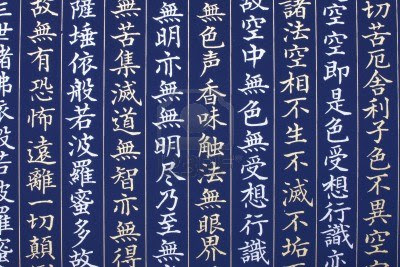 切苦厄舍利子色不異空空
空空即是色受想行識亦
諸法空相不生不滅不垢不
故空中無色無受想行識
無色声香味触法無眼界
無明亦無無明尽乃至無
無苦集滅道無智亦無得
薩埵依般若波羅蜜多故
故無有恐怖遠離一切顛
三世諸佛依般若波羅蜜